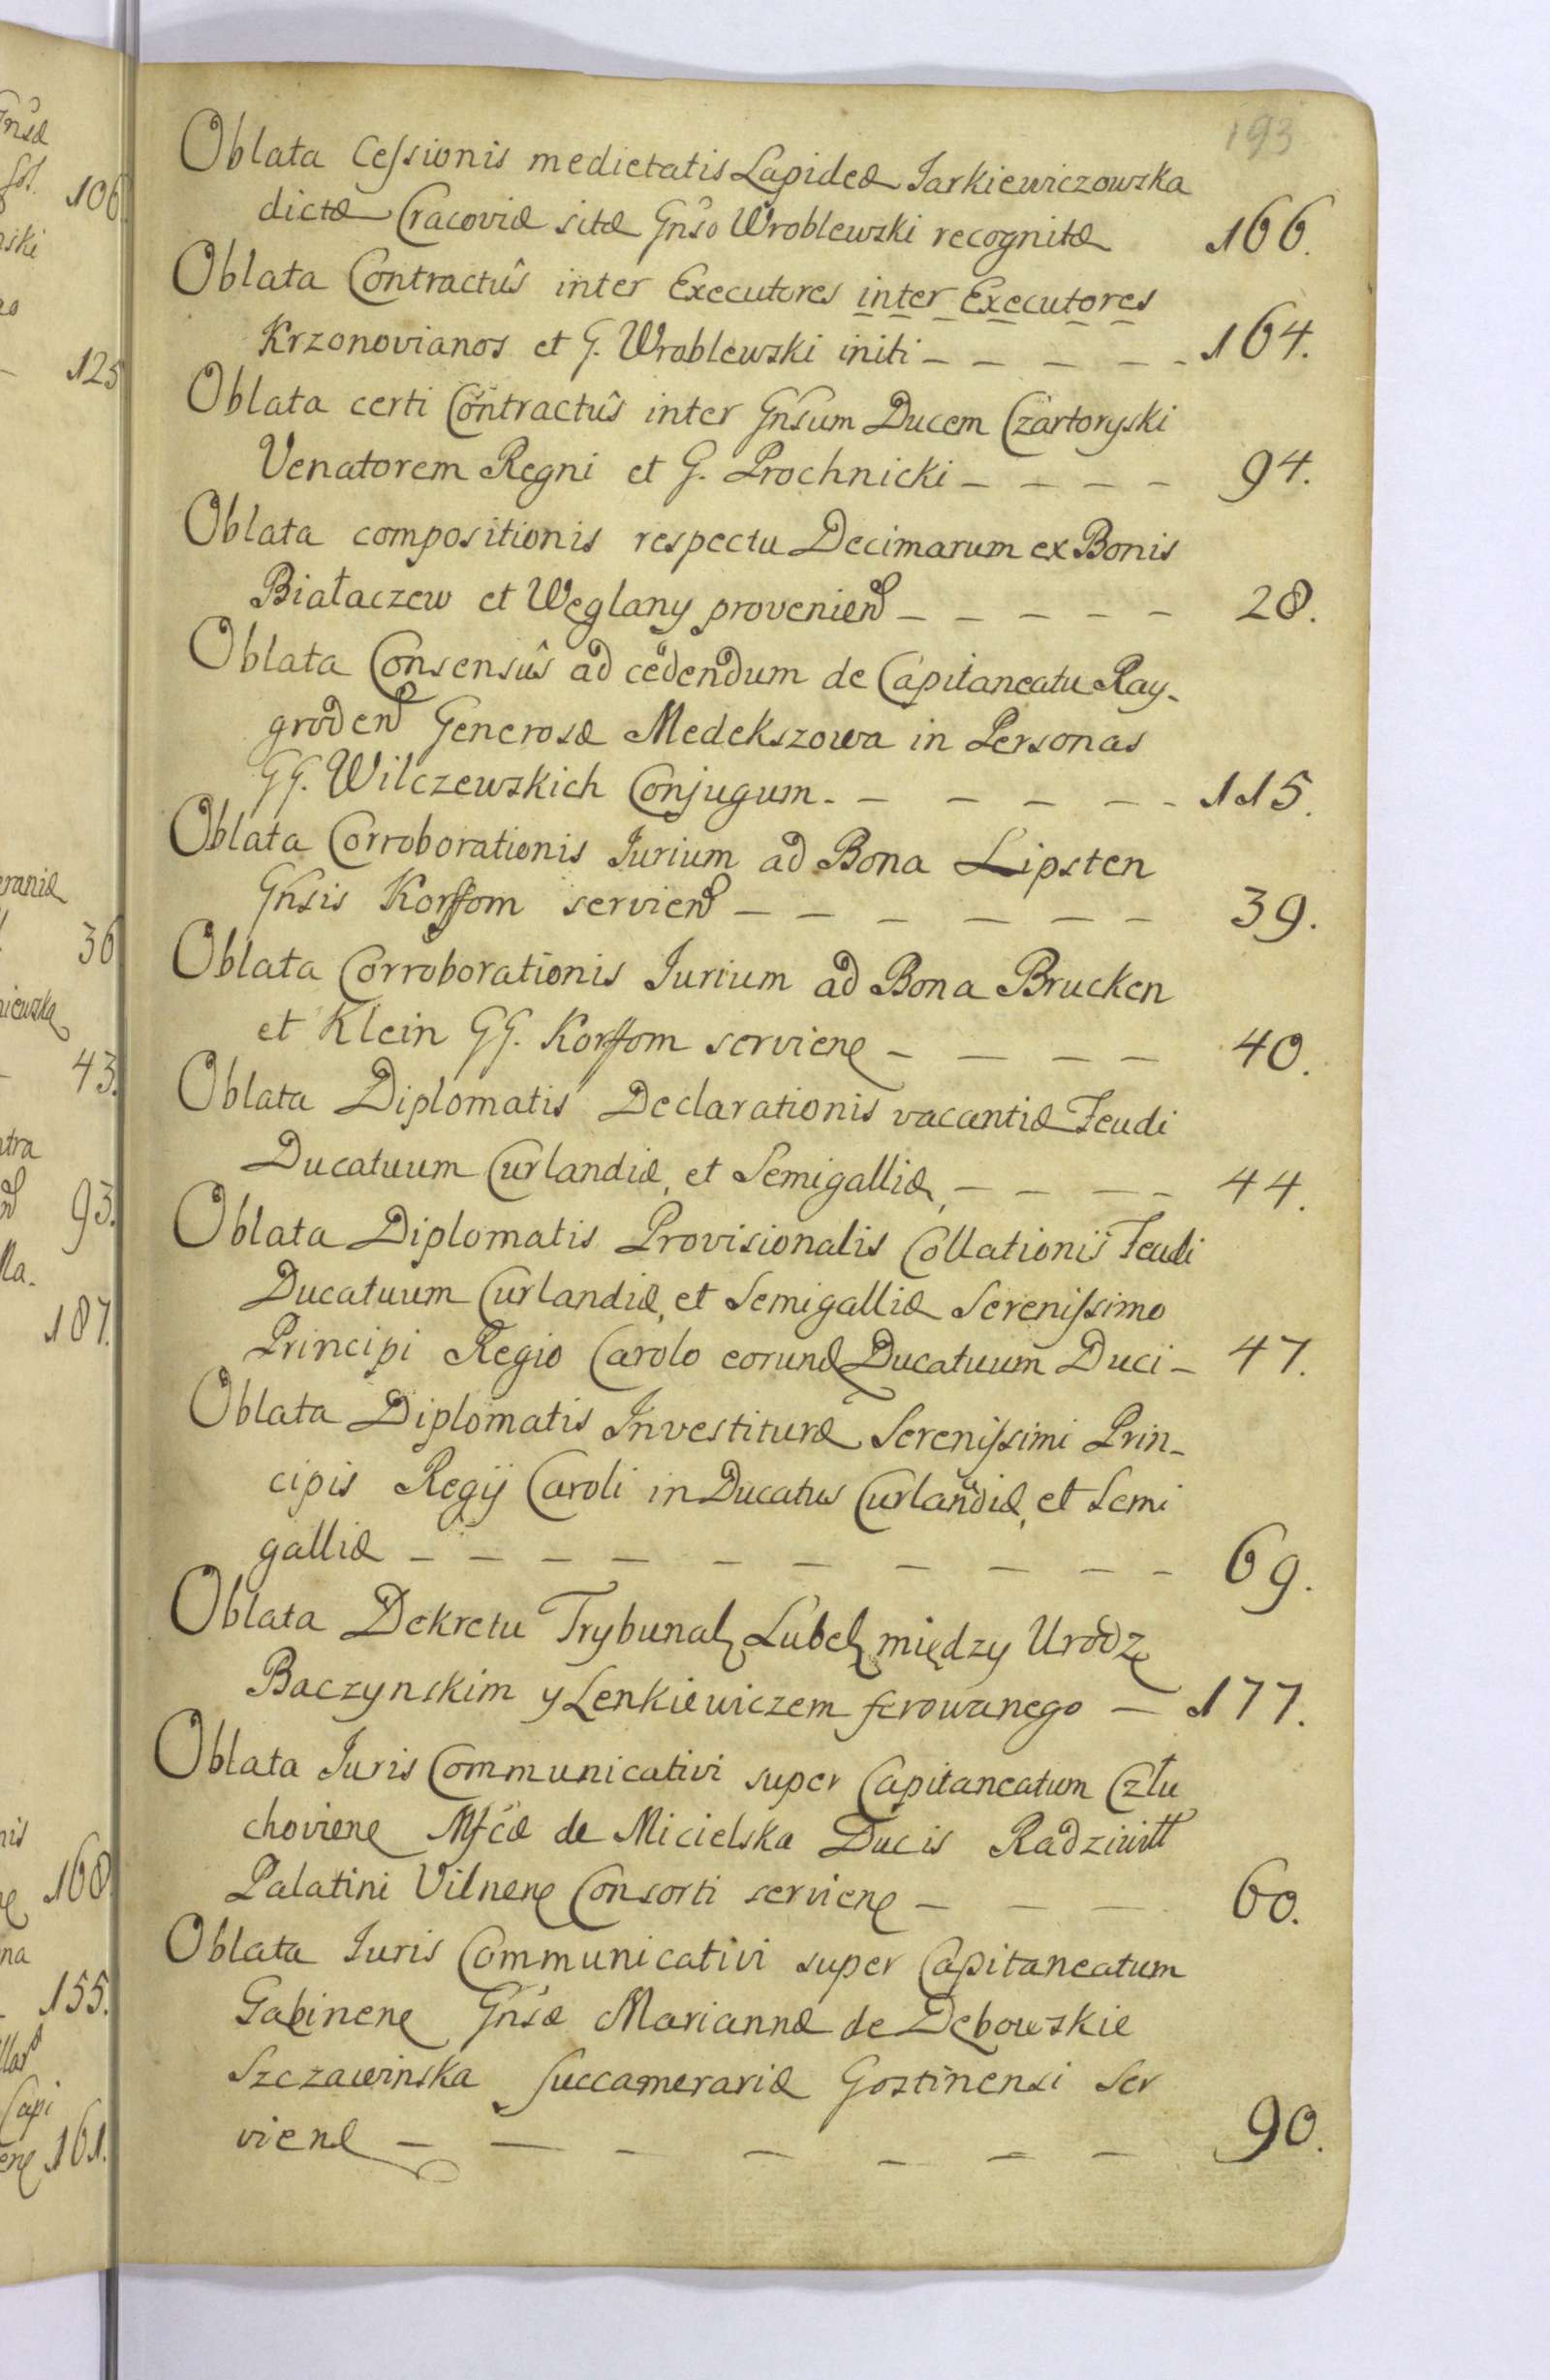 193
Oblata Cessionis medietatis Lapideæ Jarkiewiczowska
dictæ Cracoviæ sitæ Gnso Wroblewski recognitæ 166.
Oblata Contractûs inter Executores inter Executores
Krzonovianos et G. Wroblewski initi - - - - - 164.
Oblata certi Contractûs inter Gnsum Ducem Czartoryski
Venatorem Regni et G. Prochnicki - - - - 94.
Oblata compositionis respectu Decimarum ex Bonis
Białaczew et Węglany provenien - - - - - 28.
Oblata Consensûs ad cedendum de Capitaneatu Ray-
groden Generosæ Medekszowa in Personas
GG. Wilczewskich Conjugum - - - - - - 115.
Oblata Corroborationis Jurium ad Bona Lipsten
Gnsis Korffom servien - - - - - - 39.
Oblata Corroborationis Jurium ad Bona Brucken
et Klein GG. Korffom serviene - - - - 40.
Oblata Diplomatis Declarationis vacantiæ Feudi
Ducatuum Curlandiæ, et Semigalliæ, - - - - 44.
Oblata Diplomatis Provisionalis Collationis Feudi
Ducatuum Curlandiæ, et Semigalliæ Serenissimo
Principi Regio Carolo eorund Ducatuum Duci - 47.
Oblata Diplomatis Investituræ Serenissimi Prin-
cipis Regij Caroli in Ducatus Curlandiæ, et Semi
galliæ - - - - - - - - - - 69.
Oblata Dekretu Trybunal Lubel między Urodz
Baczynskim y Lenkiewiczem ferowanego - 177.
Oblata Juris Communicativi super Capitaneatum Człu
choviene Mfcæ de Micielska Ducis Radziwiłł
Palatini Vilnene Consorti serviene - - - 60.
Oblata Juris Communicativi super Capitaneatum
Gąbinene Gnsæ Mariannæ de Dębowskie
Szczawinska Succamerariæ Gostinensi Ser
viene - - - - - - - 90.